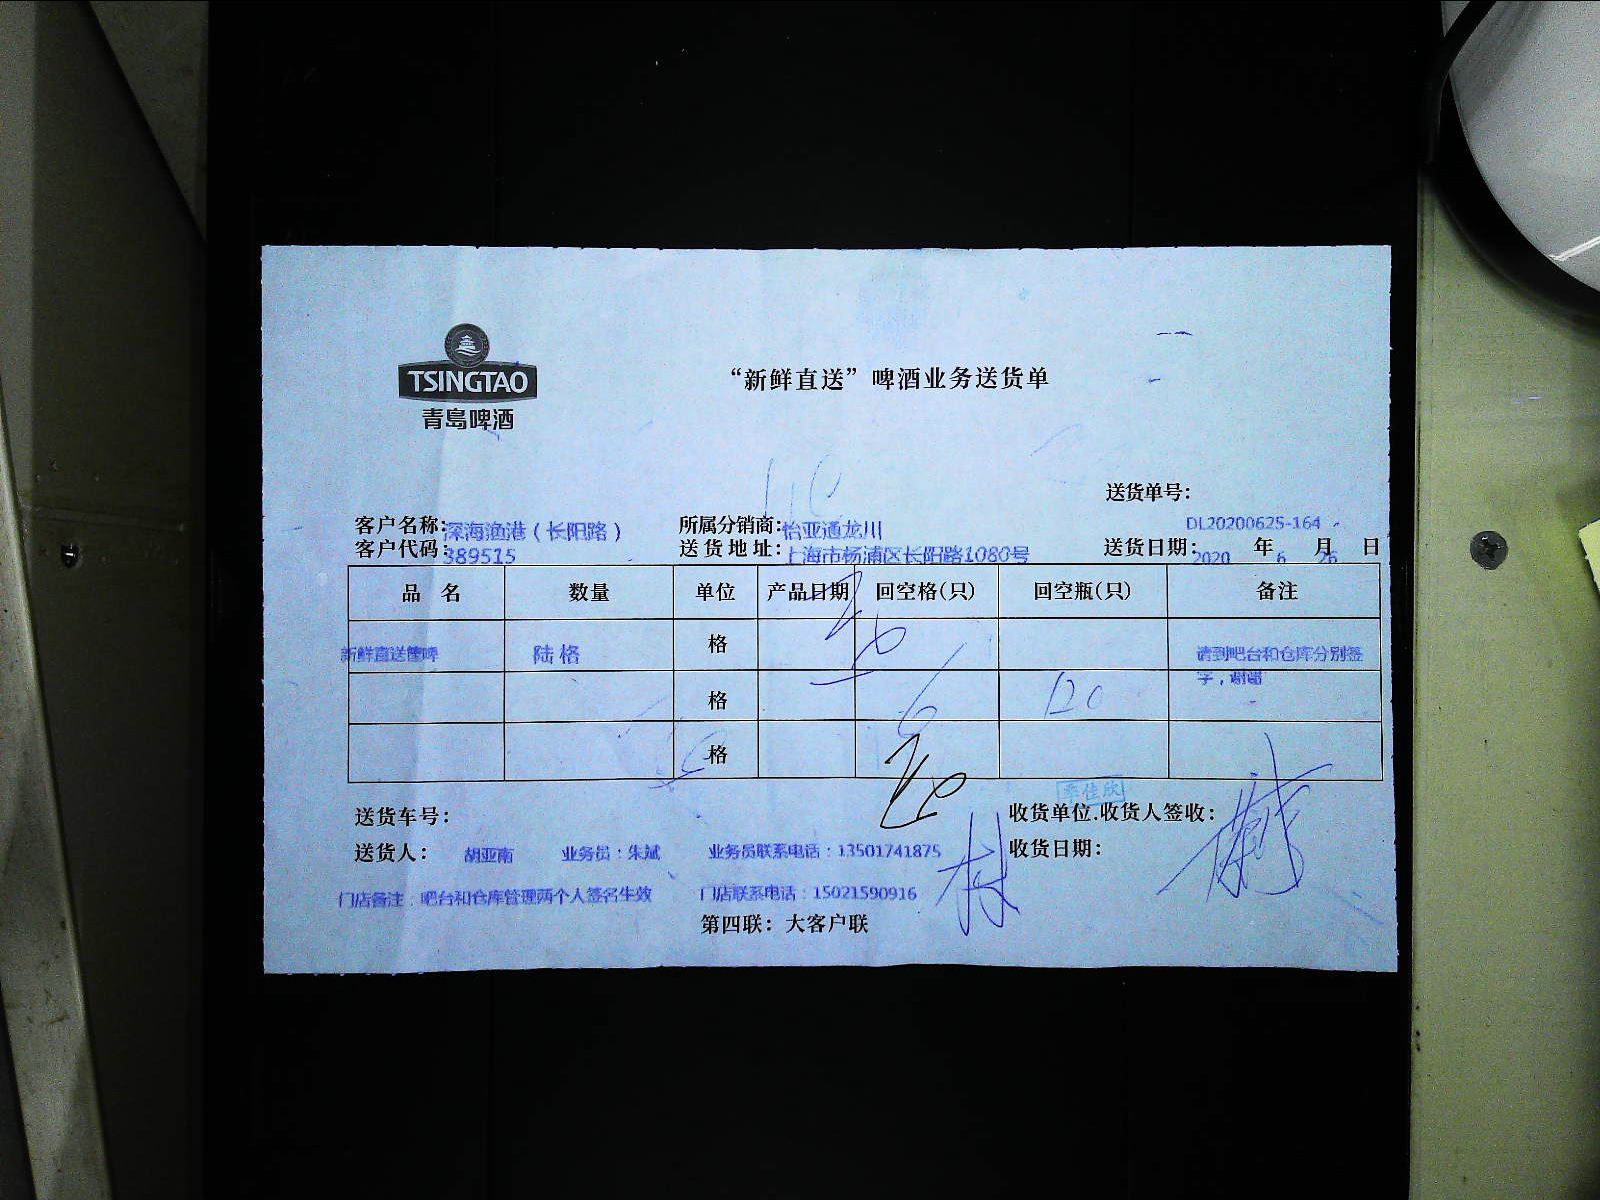 TSINGTAO
青岛啤酒
“新鲜直送”啤酒业务送货单
送货单号：
DL20200625-164
客户名称：深海渔港（长阳路） 所属分销商：怡亚通龙川
客户代码：389515 送货地址：上海市杨浦区长阳路1080号 送货日期：2020 年 6 月 26 日
品名 数量 单位 产品日期 回空格(只) 回空瓶(只) 备注
新鲜直送篓啤 陆格 格 请到吧台和仓库分别签
字，谢谢
格 6 120
格
季佳欣
送货车号： 收货单位.收货人签收：
送货人： 胡亚南 业务员：朱斌 业务员联系电话：13501741875 收货日期：
门店备注：吧台和仓库管理两个人签名生效 门店联系电话：15021590916
第四联：大客户联